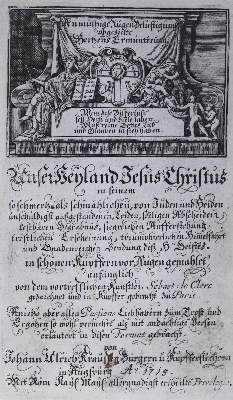 Anmuthige Augen-Belustigung
abgezielte
Hertzens Ermunterung
Wem diese
und
Unser Heyland Jesus Christus
in seinem
so schmertz als schmählichen, von Juden und Heiden
unschuldigst ausgestandenen Leiden, seligen Abscheiden,
Begräbnus, siegreichen Aufferstehung
tröstlichen Erscheinung, triumphirlichen Himmelfahrt
und Gnadenreicher Sendung deß H. Geistes.
in schönen Kupffern vor Augen gemahlet
anfänglich
von dem vortrefflichen Künstler Sebast: le Clerc
gezeichnet und in Kupffer gebracht zu Paris
aber allen Passions Liebhabern zum Trost und
Ergözen so wohl vermehrt als mit andächtigen Versen
erläutert in disen Format gebracht
von
Johann Ulrich Kraußen Burgern u. Kupfferstechern
in Augspurg
Mit Röm. Kaÿß. Maÿß. allergnädigst ertheilte Privilegio.